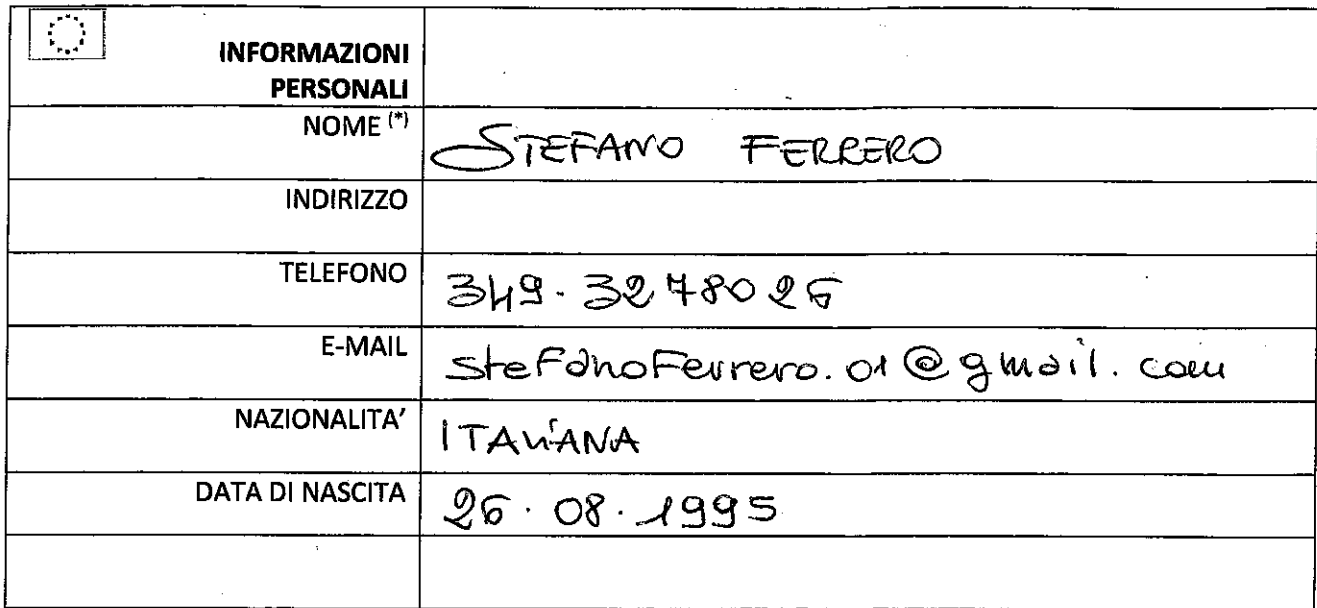 INFORMAZIONI
PERSONALI
NOME (*) STEFANO FERRERO
INDIRIZZO
TELEFONO 349.3278026
E-MAIL stefanoFerrero.01@gmail.com
NAZIONALITA' ITALIANA
DATA DI NASCITA 26.08.1995